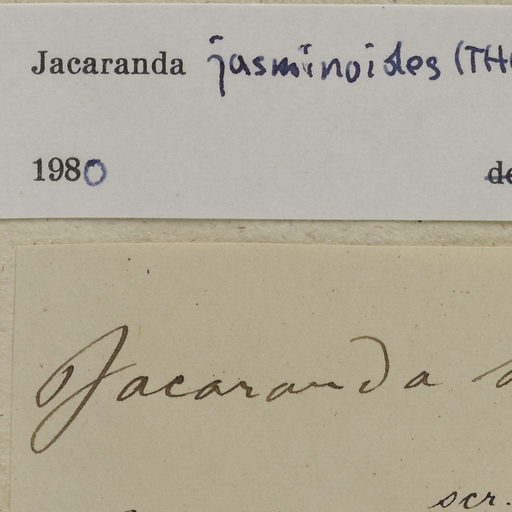 Jacaranda jasminoides (TH
1980 de
Jacaranda
scr.